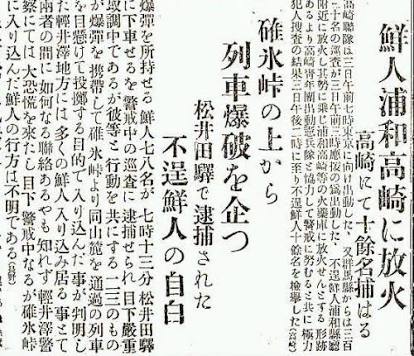 鮮人浦和高崎に放火
高崎にて十餘名捕はる
高崎聯隊は三日午前七時東京に向け出動した、
二十名の巡査が三日午前二時應援の爲出動した
犯人捜査の結果三日午後一時に至り不逞鮮人十餘名を檢擧した
碓氷峠の上から
列車爆破を企つ
松井田驛で逮捕された
不逞鮮人の自白
爆彈を所持せる鮮人七八名が、七時十三分松井田驛
に下車せるを警戒中の巡査に逮捕せられ目下嚴重
取調中であるが彼等と行動を共にする一二三のもの
が爆彈を携帶して碓氷峠より同山麓を通過の列車
を目懸けて投擲する目的で入り込んだ事が判明し
た輕井澤地方には多くの鮮人入り込み居る事とて
兩者の間に如何なる聯絡あるやも知れず輕井澤警
察にては大恐慌を來たし目下警戒中なるが碓氷峠
に入り込んだ鮮人の行方は不明である